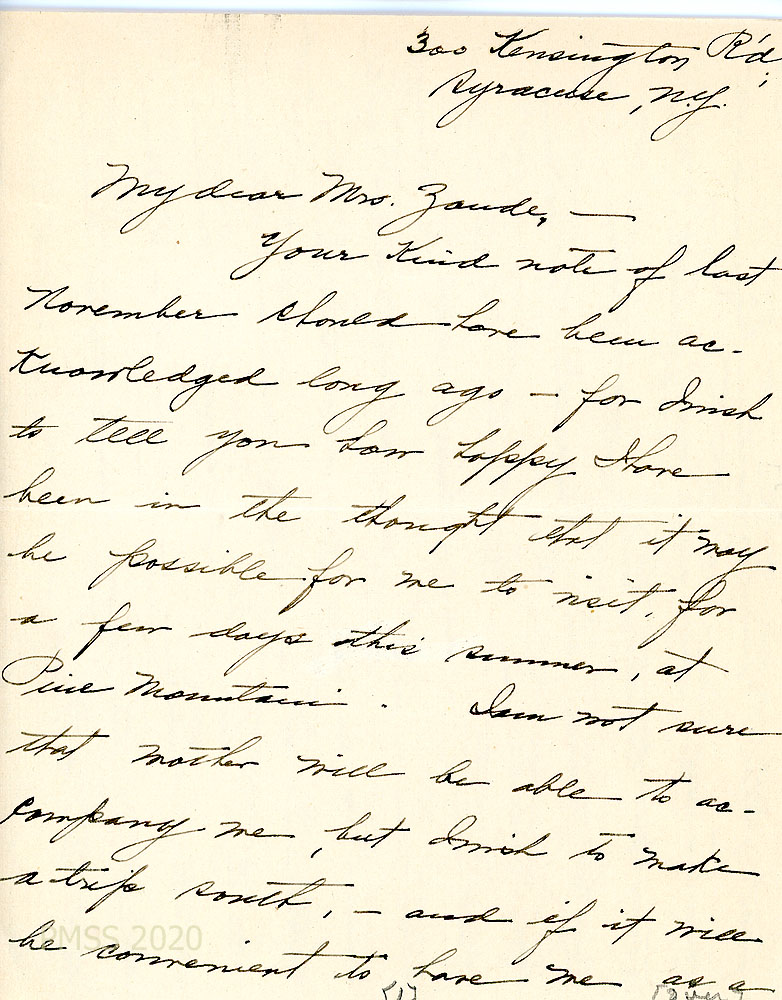 300 Kensington R'd,
Syracuse, N.Y.
My dear Mrs. Zande, —
Your kind note of last
November should have been ac-
knowledged long ago — for I wish
to tell you how happy I have
been in the thought that it may
be possible for me to visit, for
a few days this summer, at
Pine Mountain. I am not sure
that mother will be able to ac-
company me, but I wish to make
a trip south, — and if it will
be convenient to have me as a
PMSS 2020
(1) (over)